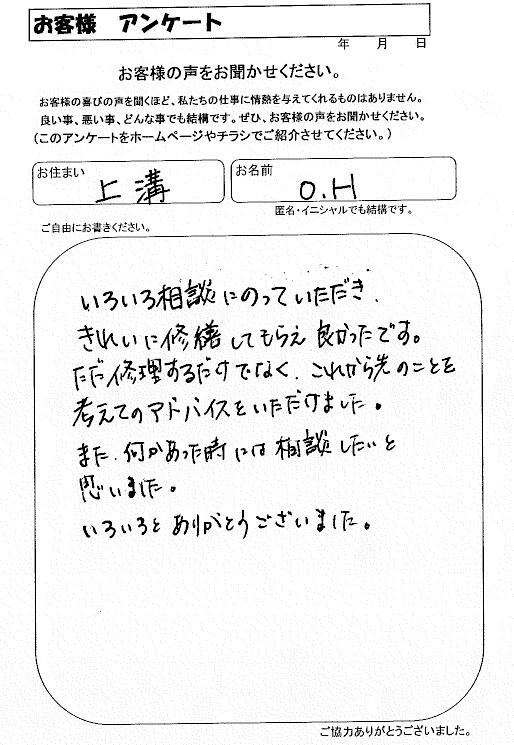 お客様 アンケート
年 月 日
お客様の声をお聞かせください。
お客様の喜びの声を聞くほど、私たちの仕事に情熱を与えてくれるものはありません。
良い事、悪い事、どんな事でも結構です。ぜひ、お客様の声をお聞かせください。
(このアンケートをホームページやチラシでご紹介させてください。)
お住まい 上溝
お名前 O.H
匿名・イニシャルでも結構です。
ご自由にお書きください。
いろいろ相談にのっていただき、
きれいに修繕してもらえ良かったです。
ただ修理するだけでなく、これから先のことを
考えてのアドバイスをいただけました。
また、何かあった時には相談したいと
思いました。
いろいろとありがとうございました。
ご協力ありがとうございました。